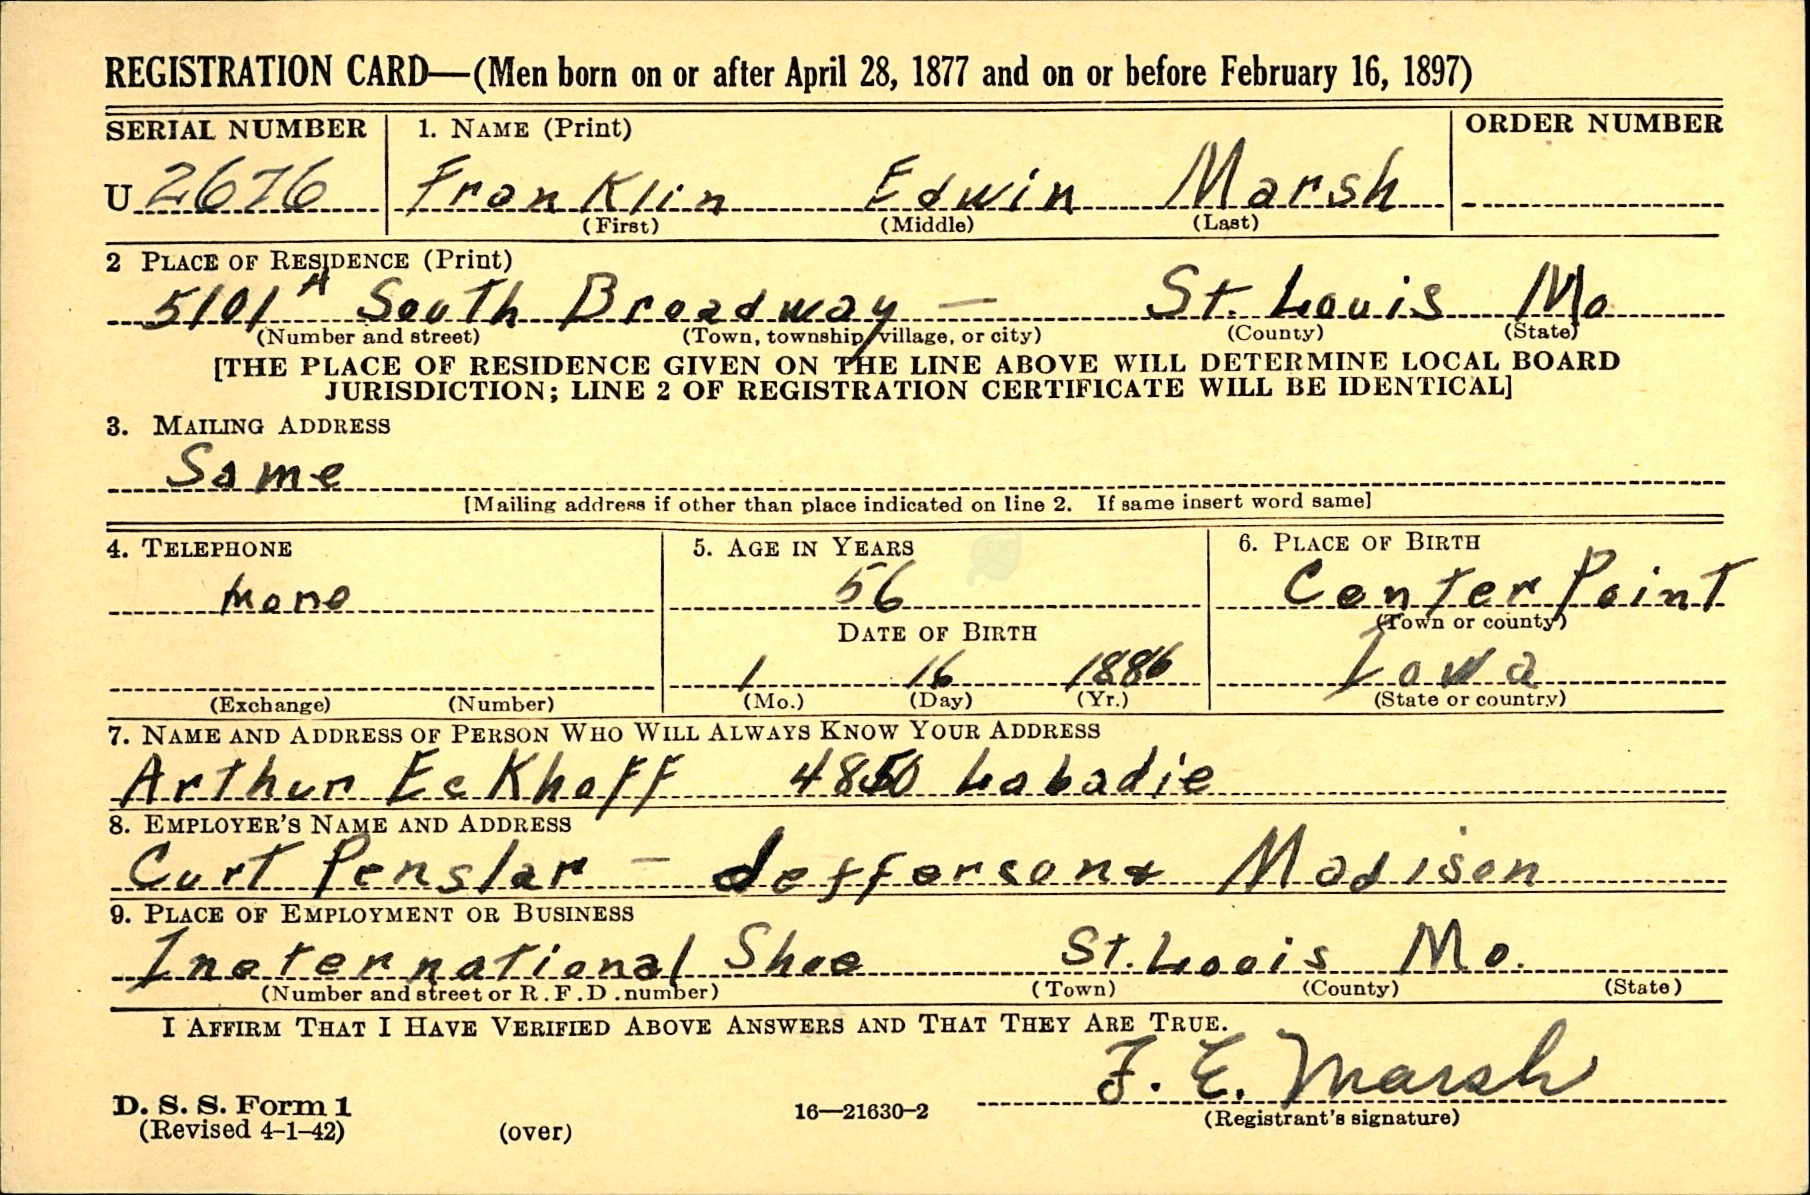 REGISTRATION CARD—(Men born on or after April 28, 1877 and on or before February 16, 1897)
SERIAL NUMBER 1. NAME (Print) ORDER NUMBER
U 2676 Franklin Edwin Marsh
(First) (Middle) (Last)
2 PLACE OF RESIDENCE (Print)
5101 A South Broadway — St. Louis Mo
(Number and street) (Town, township, village, or city) (County) (State)
[THE PLACE OF RESIDENCE GIVEN ON THE LINE ABOVE WILL DETERMINE LOCAL BOARD
JURISDICTION; LINE 2 OF REGISTRATION CERTIFICATE WILL BE IDENTICAL]
3. MAILING ADDRESS
Same
[Mailing address if other than place indicated on line 2. If same insert word same]
4. TELEPHONE 5. AGE IN YEARS 6. PLACE OF BIRTH
None 56 Center Point
(Town or county)
DATE OF BIRTH
1 16 1886 Iowa
(Exchange) (Number) (Mo.) (Day) (Yr.) (State or country)
7. NAME AND ADDRESS OF PERSON WHO WILL ALWAYS KNOW YOUR ADDRESS
Arthur Eckhoff 4850 Labadie
8. EMPLOYER'S NAME AND ADDRESS
Curt Penslar — Jefferson & Madison
9. PLACE OF EMPLOYMENT OR BUSINESS
Ineternational Shoe St. Loois Mo.
(Number and street or R. F. D. number) (Town) (County) (State)
I AFFIRM THAT I HAVE VERIFIED ABOVE ANSWERS AND THAT THEY ARE TRUE.
F. E. Marsh
D. S. S. Form 1 16—21630-2 (Registrant's signature)
(Revised 4-1-42) (over)